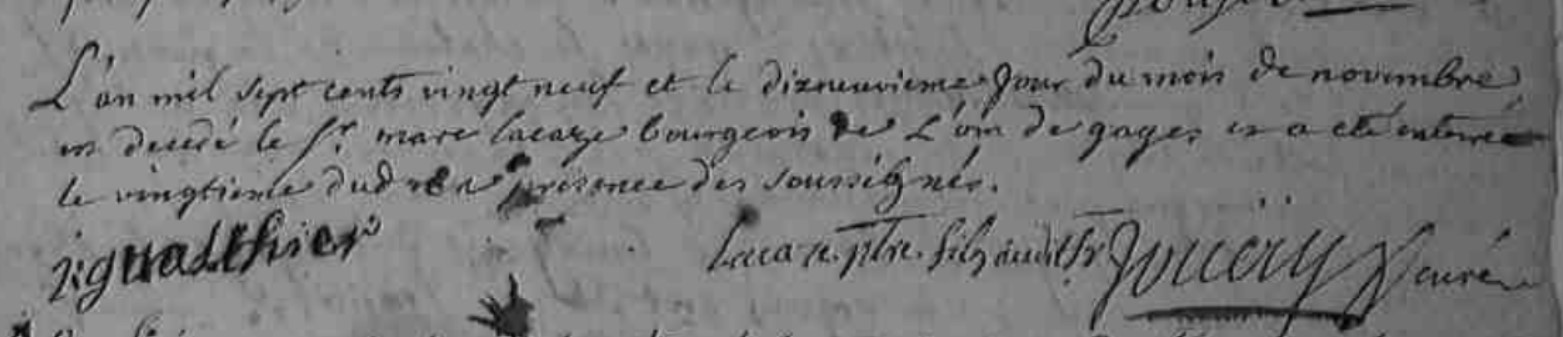 L'an mil sept cents vingt neuf et le dizneuvieme Jour du mois de novembre
est decedé le Sr. marc lacaze bourgeois de L'om de gages et a eté enterré
le vingtieme dud en presence des soussignés.
gualthier Lacaze ptre. curé